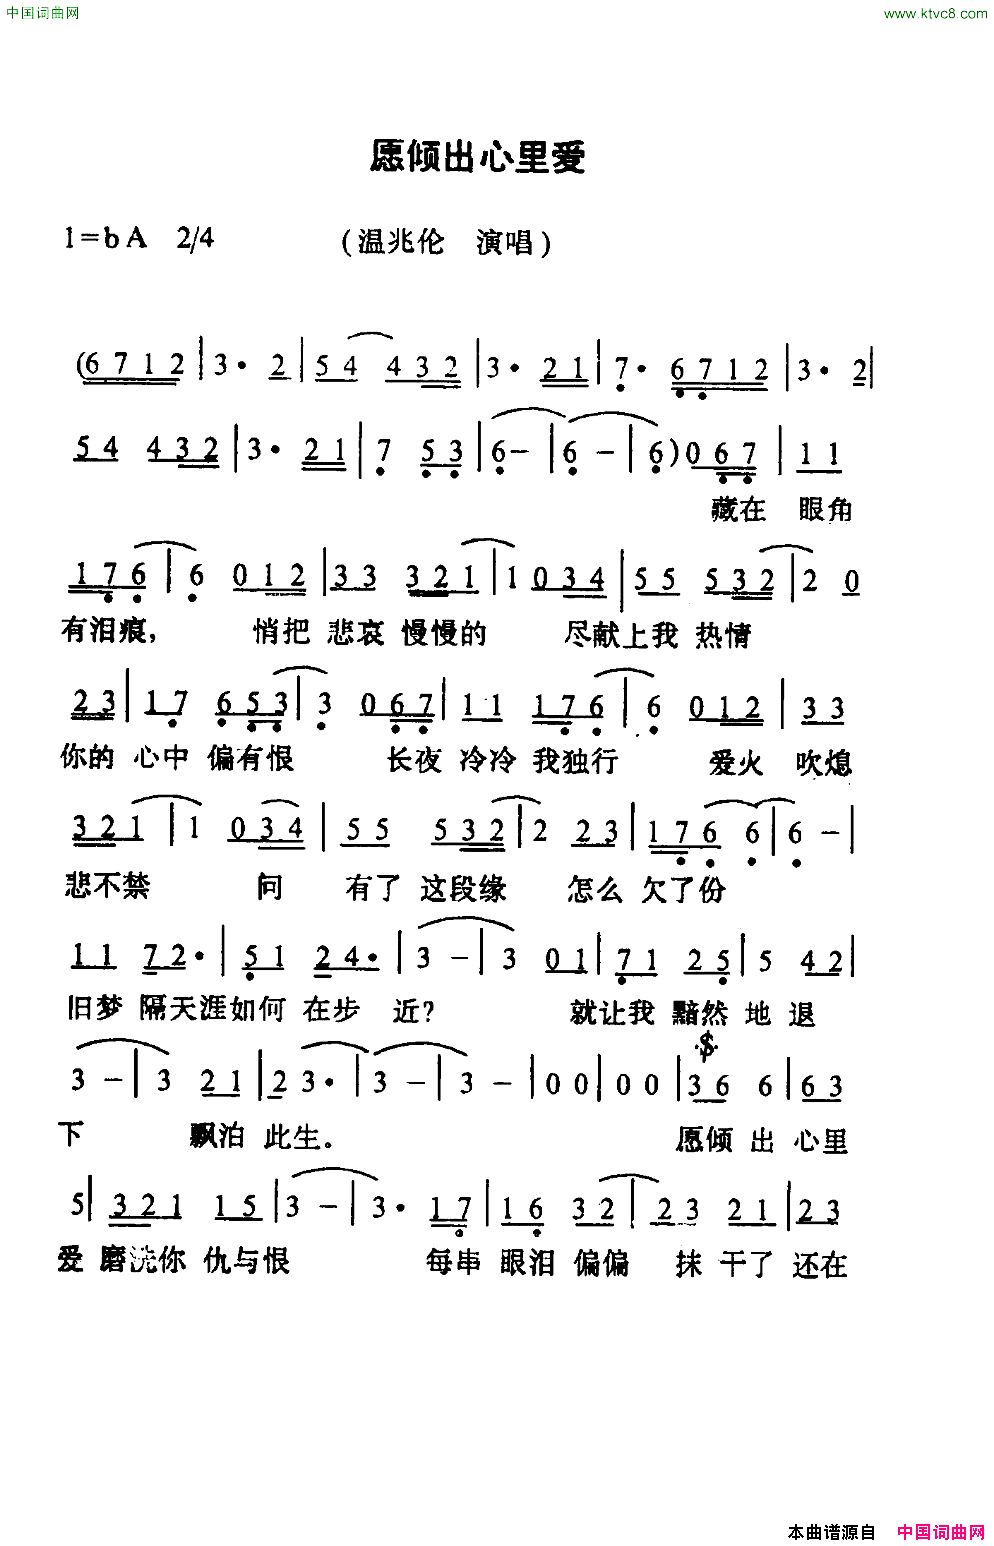 中国词曲网 www.ktvc8.com
愿倾出心里爱
1=bA 2/4 (温兆伦 演唱)
(6 7 1 2 | 3· 2 | 5 4 4 3 2 | 3· 2 1 | 7· 6 7 1 2 | 3· 2 |
5 4 4 3 2 | 3· 2 1 | 7 5 3 | 6 – | 6 – | 6) 0 6 7 | 1 1
藏在 眼角
1 7 6 | 6 0 1 2 | 3 3 3 2 1 | 1 0 3 4 | 5 5 5 3 2 | 2 0
有泪痕, 悄把 悲哀 慢慢的 尽献上我 热情
2 3 | 1 7 6 5 3 | 3 0 6 7 | 1 1 1 7 6 | 6 0 1 2 | 3 3
你的 心中 偏有恨 长夜 冷冷 我独行 爱火 吹熄
3 2 1 | 1 0 3 4 | 5 5 5 3 2 | 2 2 3 | 1 7 6 6 | 6 – |
悲不禁 问 有了 这段缘 怎么 欠了份
1 1 7 2· | 5 1 2 4· | 3 – | 3 0 1 | 7 1 2 5 | 5 4 2 |
旧梦 隔天涯如何 在步 近? 就让我 黯然 地 退
3 – | 3 2 1 | 2 3· | 3 – | 3 – | 0 0 | 0 0 | 3 6 6 | 6 3
下 飘泊 此生. 愿倾 出 心里
5 | 3 2 1 1 5 | 3 – | 3· 1 7 | 1 6 3 2 | 2 3 2 1 | 2 3
爱 磨洗你 仇与恨 每串 眼泪 偏偏 抹 干了 还在
本曲谱源自 中国词曲网